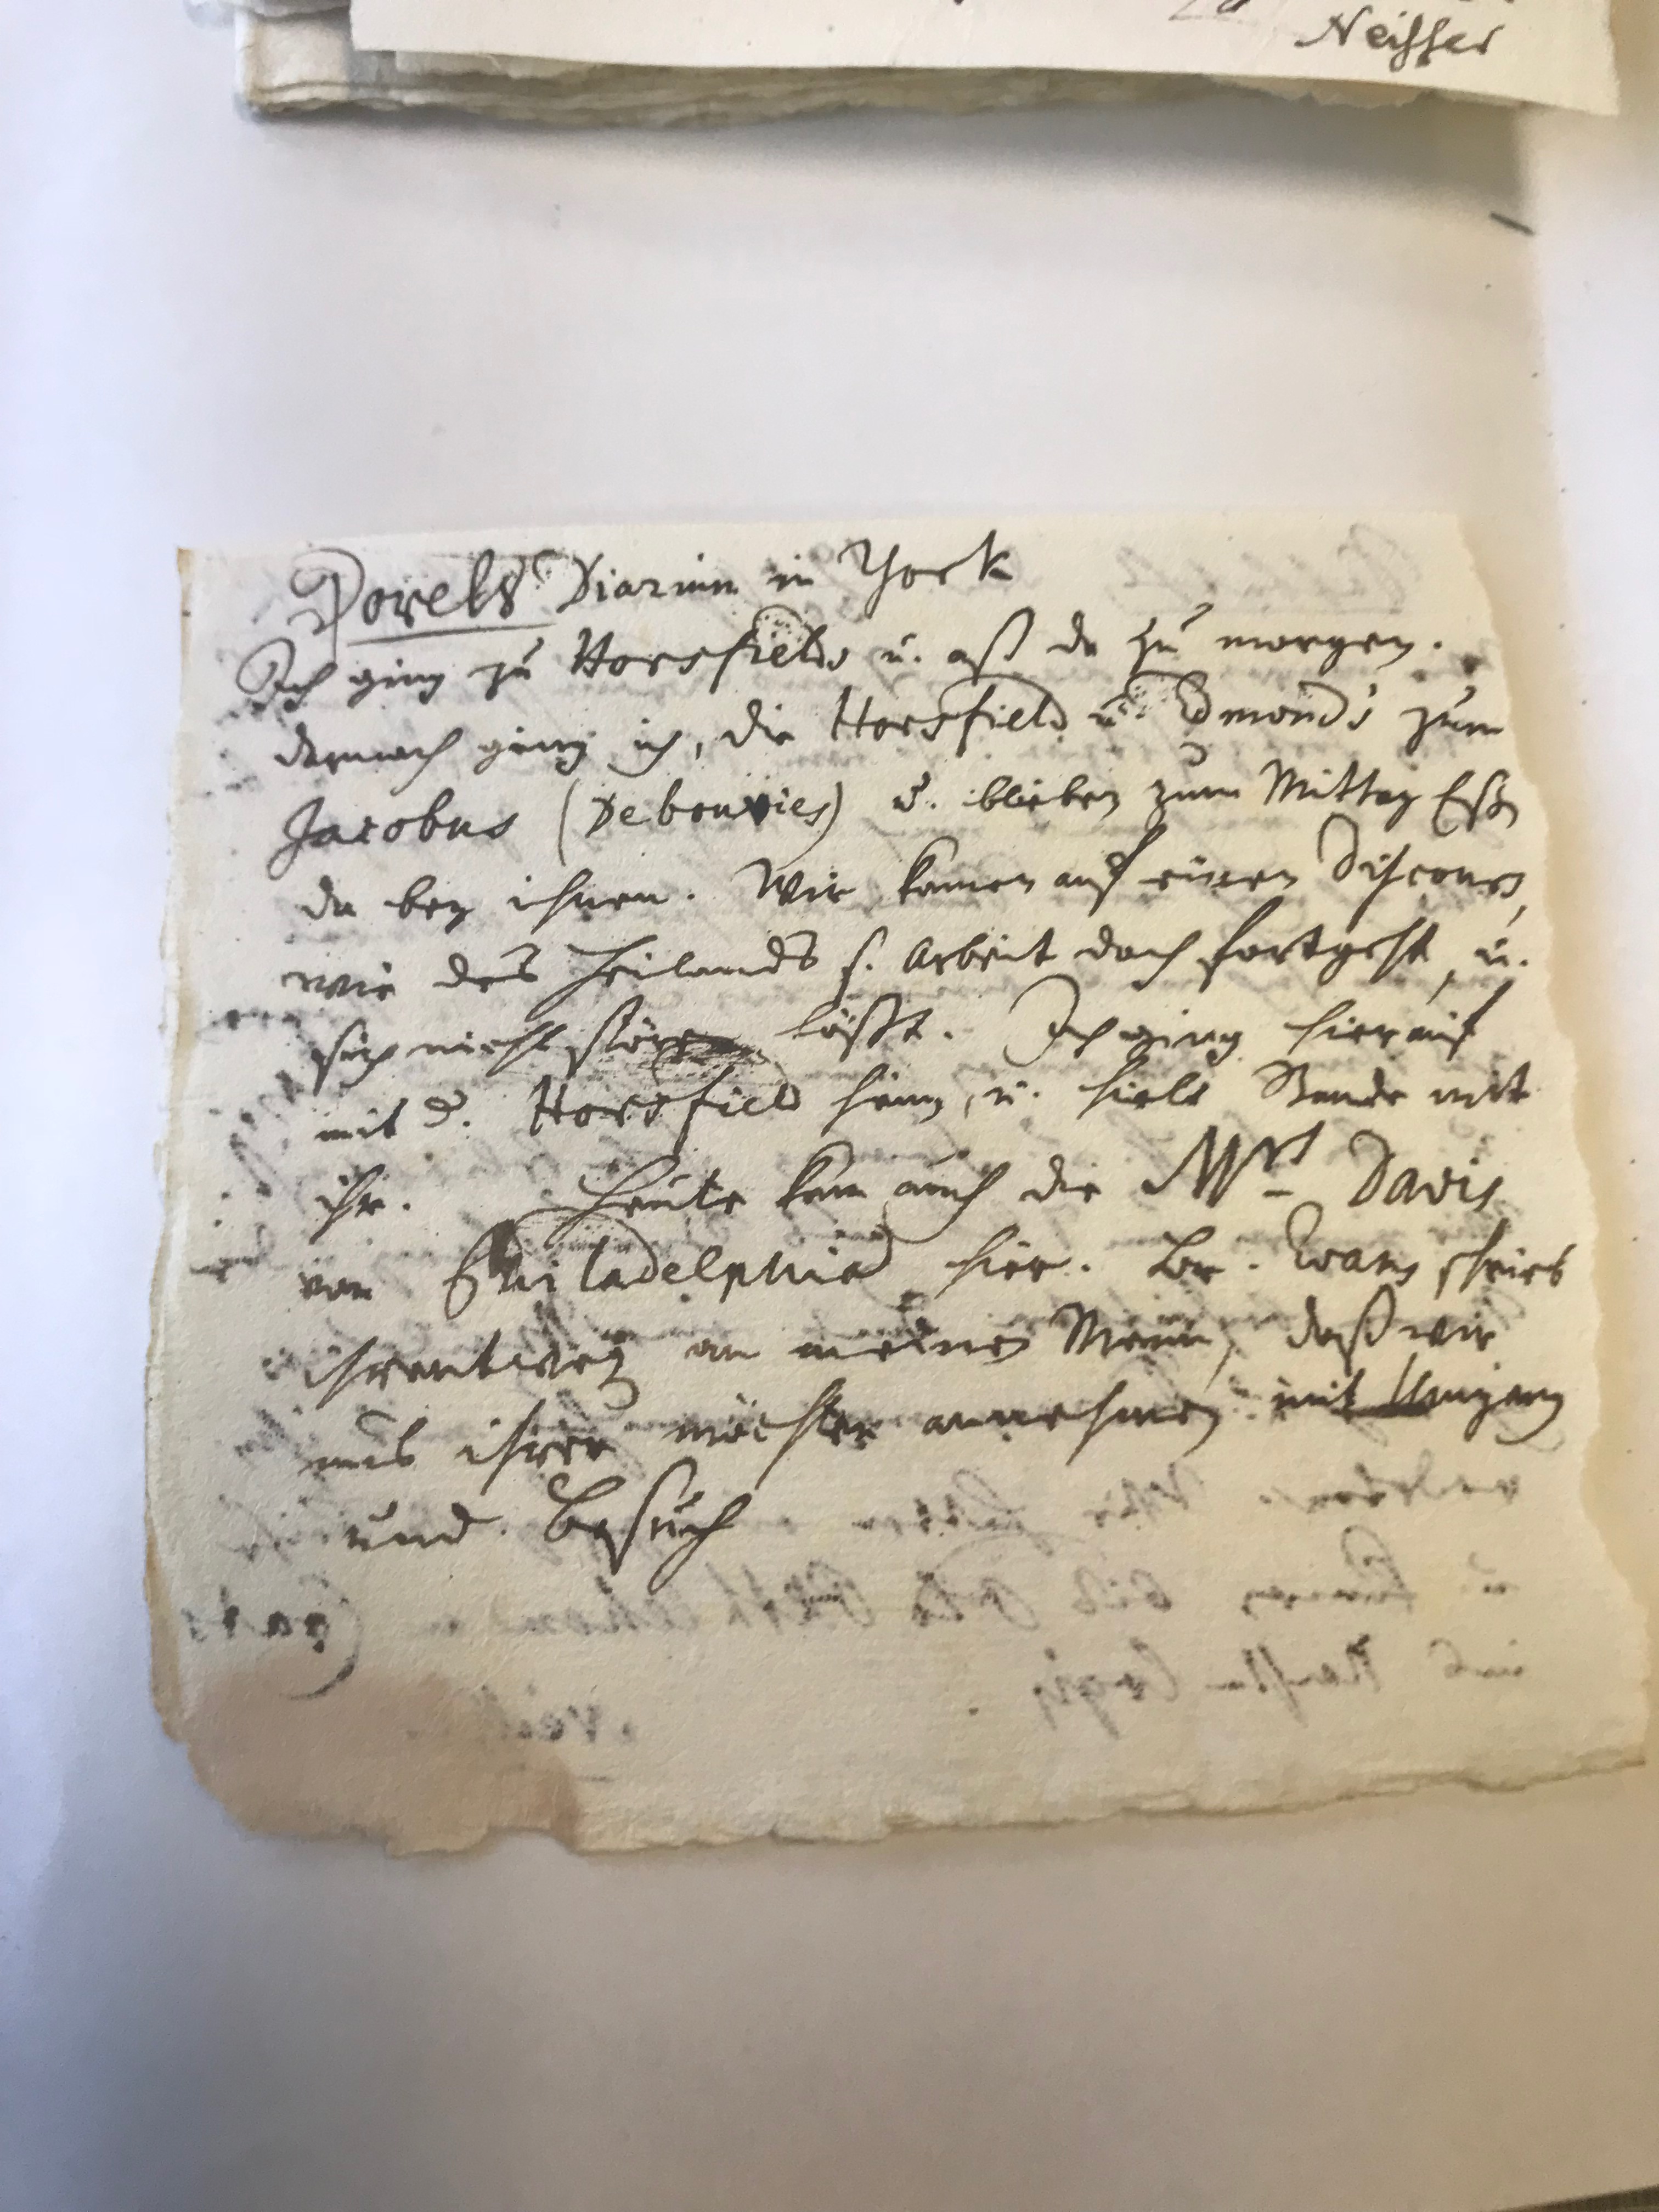 Neisser
Powels Diarium in York
Ich ging zu Horsfields u. aß da zu morgen.
darnach ging ich, die Horsfield u. Edmonds zum
Jacobus (Debouxies) u. blieben zum Mittag Eßen
da bey ihnen. Wir kamen auf einen Discours,
wie des Heilands s. Arbeit doch fortgeht, u.
sich nicht stören läßt. Ich ging hierauf
mit d. Horsfield heim, u. hielt Stunde mit
ihr. Heute kam auch die Mrs Davis
von Philadelphia hier. Br. Evans schrieb
ihrentwegen an meinen Mann, daß wir
uns ihrer möchten annehmen mit Umgang
und Besuch